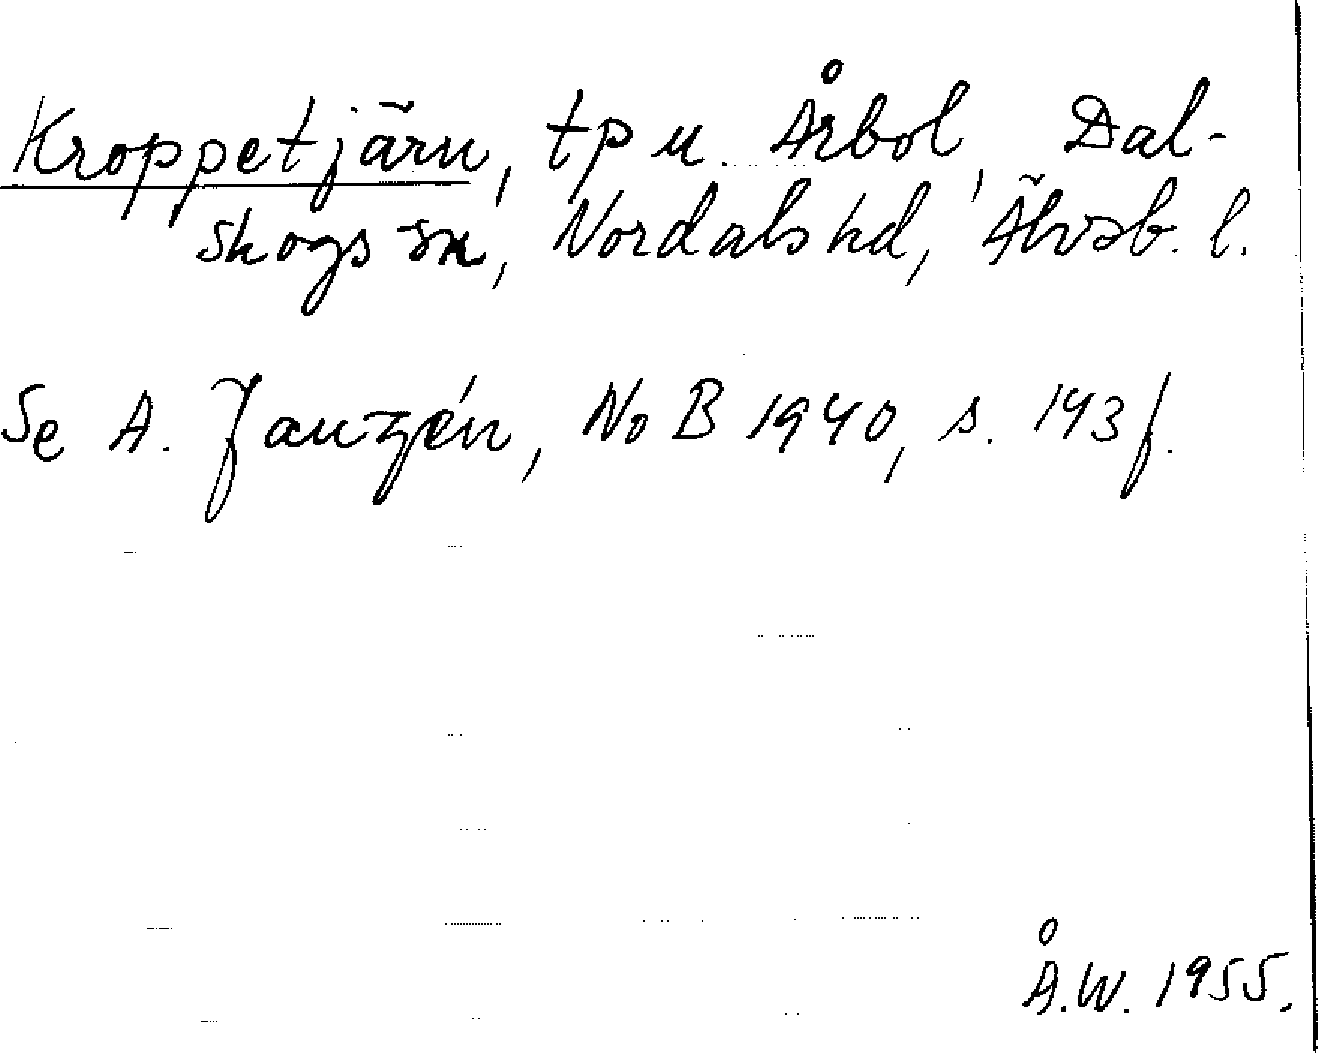 Kroppetjärn, tp u. Årbol, Dal-
skogs sn, Nordals hd, Älvsb. l.
Se A. Janzén, NoB 1940, s. 143 f.
Å.W. 1955.